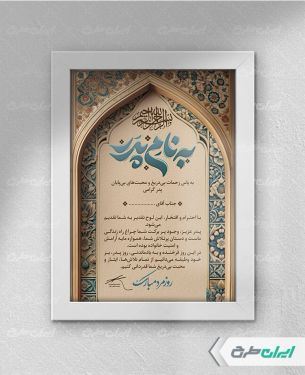 بسم الله الرحمن الرحیم
به نام پدر
به پاس زحمات بی‌دریغ و محبت‌های بی‌پایان
پدر گرامی
جناب آقای ....................
با احترام و افتخار، این لوح تقدیر به شما تقدیم
می‌شود.
پدر عزیز، وجود پر برکت شما چراغ راه زندگی
ماست و دستان پرتلاش شما، همواره مایه آرامش
و امنیت خانواده بوده است.
در این روز فرخنده و به یادماندنی، روز پدر، بر
خود وظیفه می‌دانیم از تمام تلاش‌ها، ایثار و
محبت بی‌دریغ شما قدردانی کنیم.
روز مرد مبارک
ایران طرح